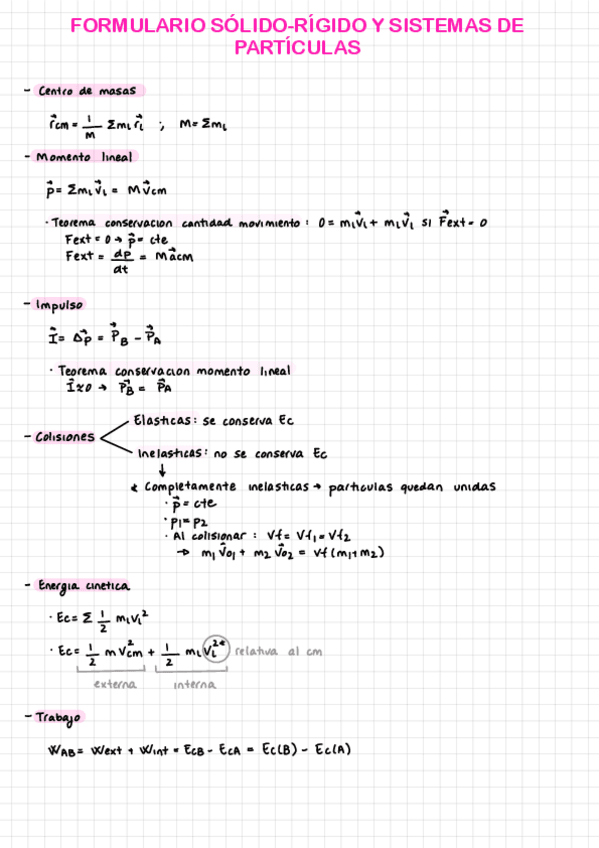 FORMULARIO SÓLIDO-RÍGIDO Y SISTEMAS DE
PARTÍCULAS
- Centro de masas
r⃗cm = 1/M Σmᵢ r⃗ᵢ ; M = Σmᵢ
- Momento lineal
p⃗ = Σmᵢ v⃗ᵢ = M v⃗cm
· Teorema conservacion cantidad movimiento : 0 = mᵢv⃗ᵢ + mᵢv⃗ᵢ si F⃗ext = 0
Fext = 0 → p⃗ = cte
Fext = dp/dt = M a⃗cm
- Impulso
I⃗ = Δp⃗ = P⃗B - P⃗A
· Teorema conservacion momento lineal
I⃗ ≈ 0 → P⃗B = P⃗A
- Colisiones
Elasticas: se conserva Ec
Inelasticas: no se conserva Ec
↓
* Completamente inelasticas → particulas quedan unidas
· p⃗ = cte
· p₁ = p₂
· Al colisionar : Vf = Vf₁ = Vf₂
→ m₁ v⃗o₁ + m₂ v⃗o₂ = Vf (m₁ + m₂)
- Energia cinetica
· Ec = Σ 1/2 mᵢvᵢ²
· Ec = 1/2 m v²cm + 1/2 mᵢ vᵢ²* relativa al cm
externa interna
- Trabajo
WAB = Wext + Wint = EcB - EcA = Ec(B) - Ec(A)